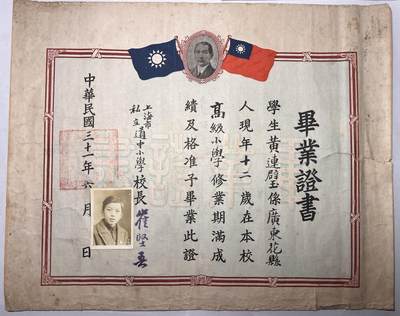 畢業證書
學生黃連璧玉係廣東花縣
人現年十二歲在本校
高級小學修業期滿成
績及格准予畢業此證
上海市
私立通中小學校長
中華民國三十一年六月 日